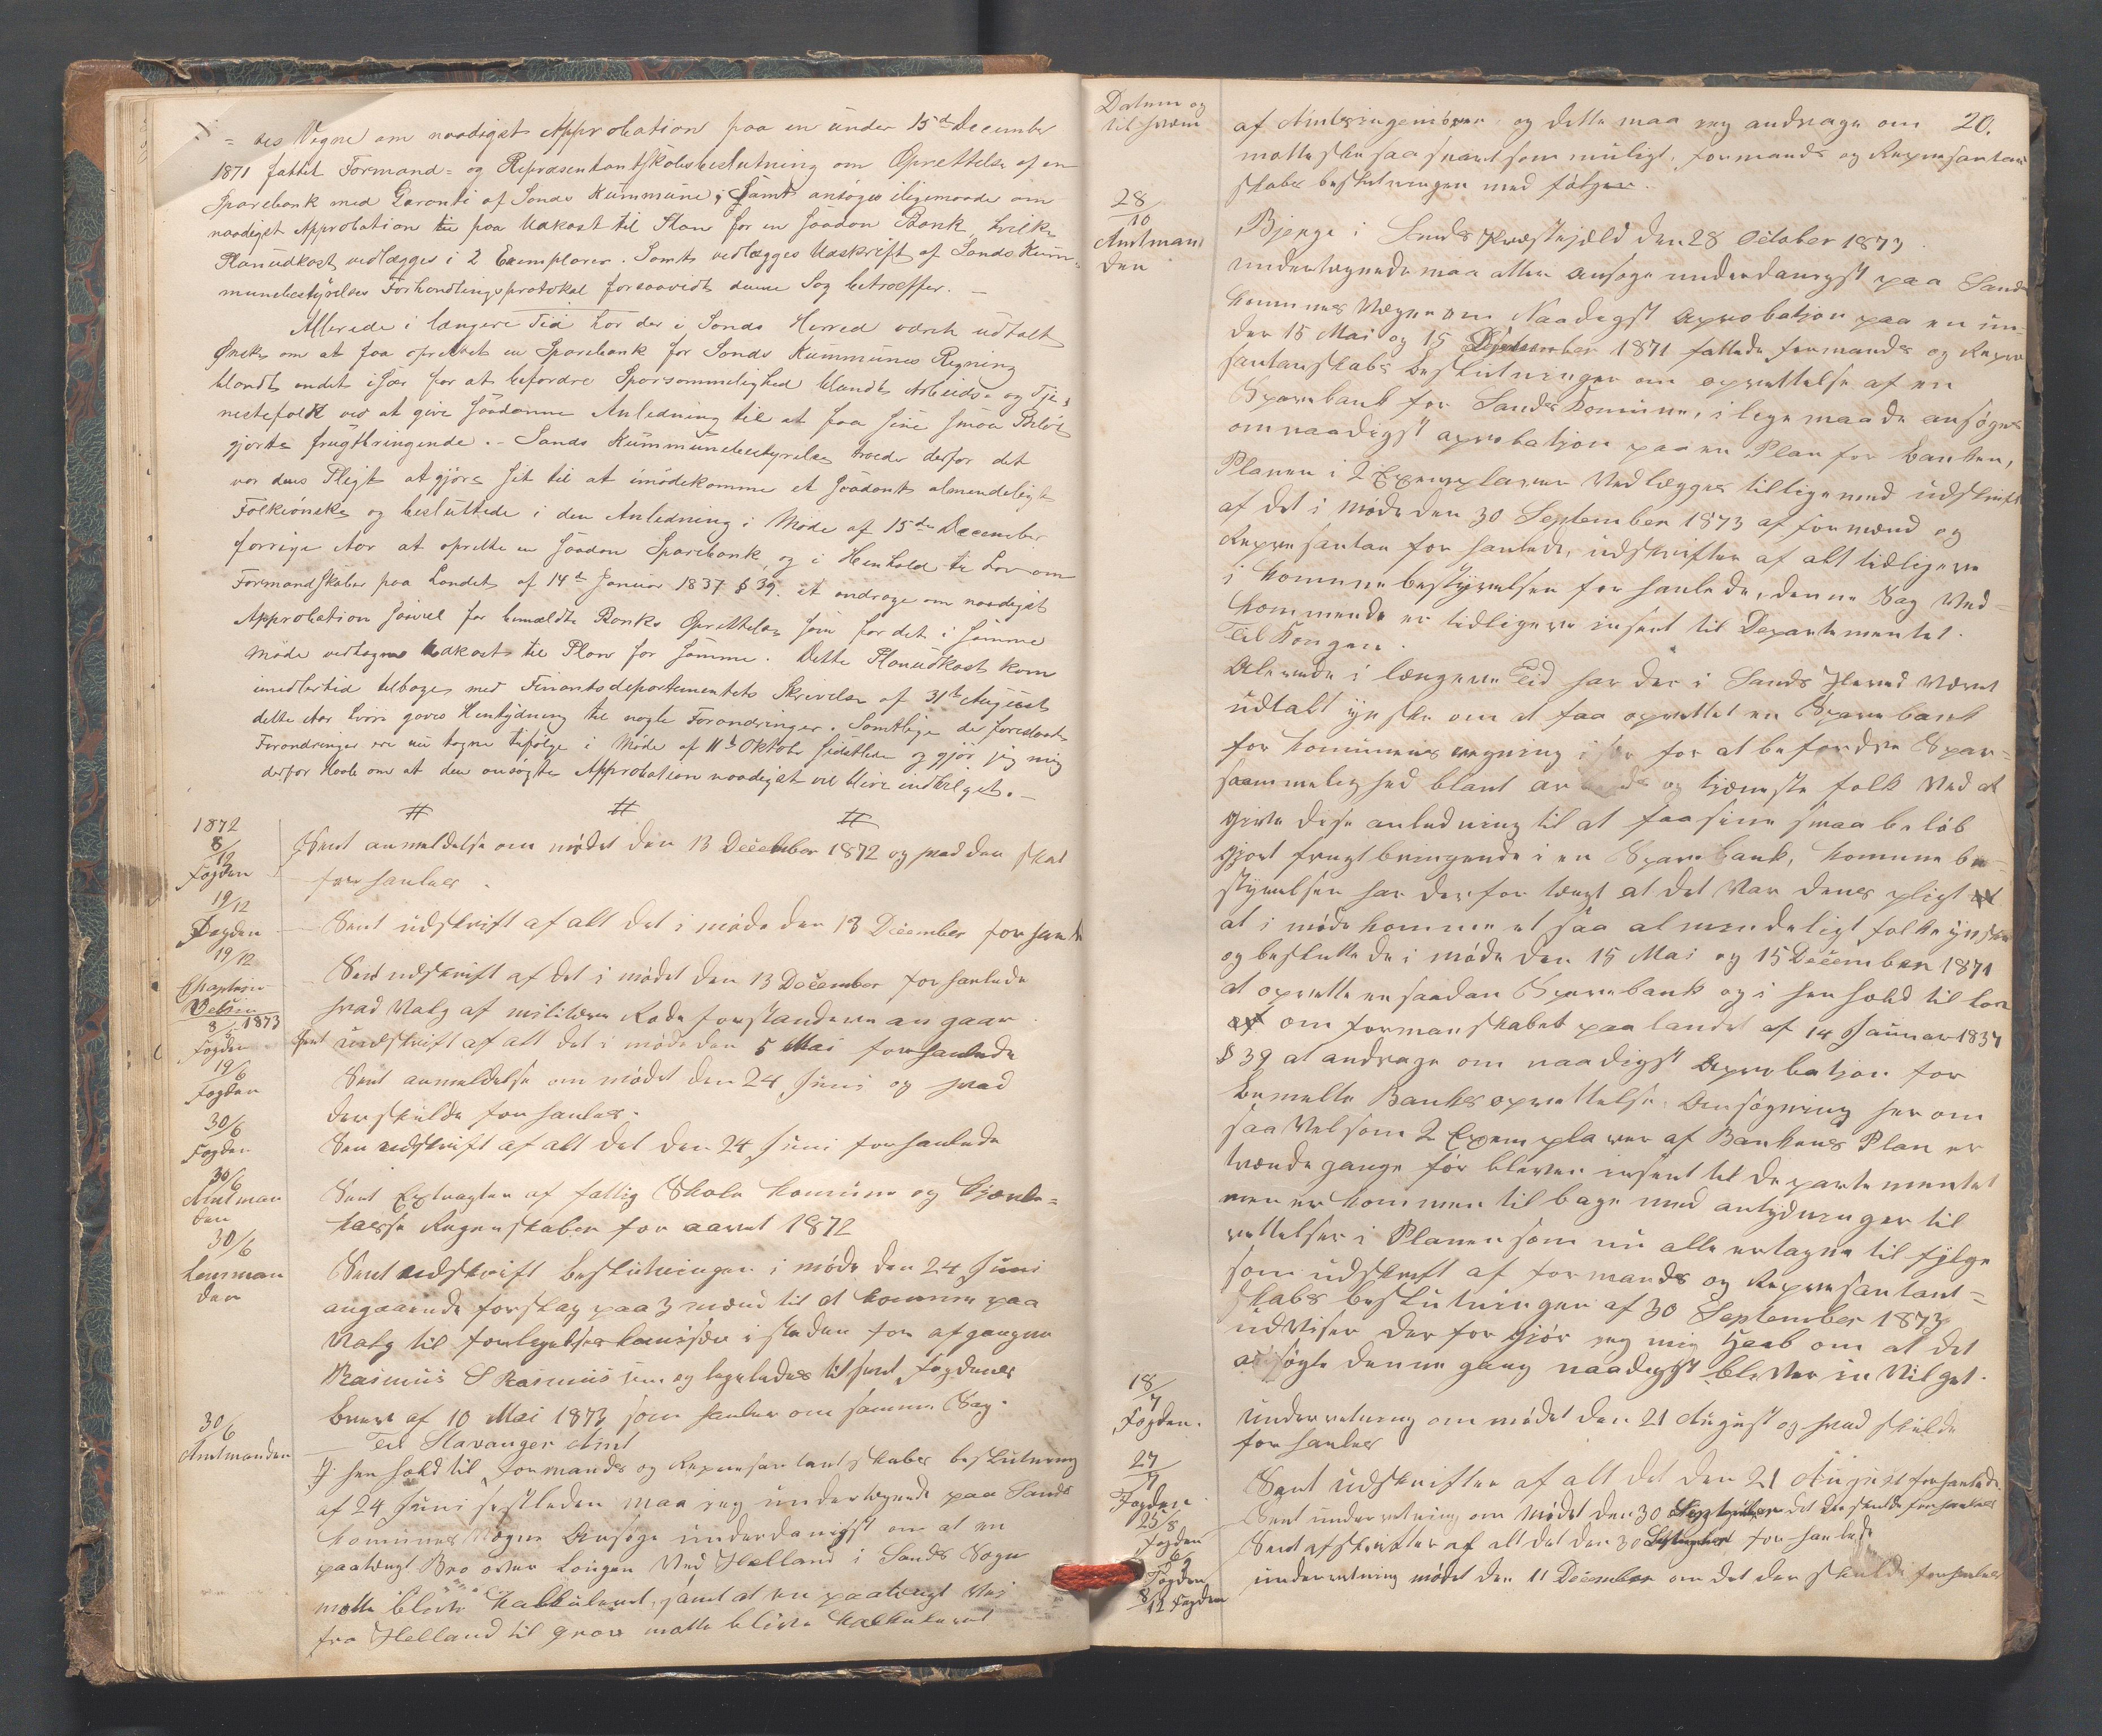 = des Vegne om naadigst Approbation paa en under 15d December
1871 fattet Formand= og Repræsentantskabsbeslutning om Oprettelse af en
Sparebank med Garanti af Sands Kummune; Samt ansøges iligemaade om
naadigst Approbation til paa Udkast til Plan for en saadan Bank, hvilke
Planudkast vedlægges i 2 Exemplarer. Samt vedlægges Udskrift af Sands Kum-
munebestyrelses Forhandlingsprotokol forsaavidt denne Sag betræffer. —
Allerede i længere Tid har der i Sands Herred været udtalt
Ønske om at faa oprettet en Sparebank for Sands Kummunes Regning
blandt andet især for at befordre Sparsommelighed blandt Arbeids- og Tje-
nestefolk ved at give saadanne Anledning til at faa sine smaa Beløb
gjorte frugtbringende. - Sands Kummunebestyrelse troede derfor det
var dens Pligt at gjøre sit til at imødekomme et saadant almendeligt
Folkeønske og besluttede i den Anledning i Møde af 15de December
forrige Aar at oprette en saadan Sparebank, og i Henhold til Lov om
Formandskaber paa Landet af 14de Januar 1837 § 39. at andrage om naadigst
Approbation saavel for bemældte Banks Oprettelse som for det i samme
Møde vedtagne Udkast til Plan for samme. Dette Planudkast kom
imedlertid tilbage med Finantsdepartementets Skrivelse af 31te August
dette Aar hvori gaves Hentydning til nogle Forandringer. Samtlige de foreslaaede
Forandringer ere nu tagne tilfølge i Møde af 11te Oktobr sidstleden og gjør jeg mig
derfor Haab om at den ansøgte Approbation naadigst vil blive indvilget. —
# # #
1872
8/12
Fogden
Sent anmeldelse om mødet den 13 December 1872 og hvad der skal
forhanles.
19/12
Fogden
Sent udskrift af alt det i møde den 13 December forhanlede
19/12
Chaptein
Sent udskrift af det i mødet den 13 December forhanlede
hvad Valg af militære Rodeforstandere angaar.
8/5 1873
Fogden
Sent udskrift af alt det i møde den 5 Mai forhanlede
19/6
Fogden
Sent anmeldelse om mødet den 24 Juni og hvad
der skulde forhanles.
30/6
Fogden
Sen udskrift af alt det den 24 Juni forhanlede
30/6
Amtman
den
Sent Extragter af fattig Skole Komune og
kasse Regenskaber for aaret 1872
30/6
Lensman
den
Sent udskrift beslutningen i møde den 24 Juni
angaaende forslag paa 3 mænd til at komme paa
Valg til forligelseskomisær i steden for afgangne
Rasmus S Rasmus sen og legeledes tilsent Fogdenes
brev af 10 Mai 1873 som hanler om samme Sag.
30/6
Amtmanden
Til Stavanger Amt
I henhold til Formands og Represantantskabes beslutning
af 24 Juni sistleden maa jeg undertegnede paa Sands
Komunes vægne Ansøge underdanigst om at en
paatengt Bro over Laagen Ved Helland i Sands Sogn
motte blive Kalkuleret, samt at en paatengt Vei
fra Helland til motte blive Kalkuleret
Datum og
til hvem
20.
af Amtsingeniøren og dette maa jeg andrage om
motte ske saa snart som muligt, formands og Represantant
skabes beslutningen med følger.
28/10
Amtman
den
Bjerge i Sands Præstejæld den 28 October 1873.
undertegnede maa atter ansøge underdanigst paa Sands
Kommunes Vægne om Naadigst Aprobatjon paa en un-
der 15 Mai og 15 December 1871 fattede formands og Repre
santanskabs beslutninger om oprettelse af en
Sparebank for Sands Komune, i lege maade ansøges
om naadigst aprobatjon paa en Plan for banken,
Planen i 2 Exemplarer Vedlægges tillige med udskrift
af det i møde den 30 September 1873 af formænd og
Represantan forhanlede, udskrifter af alt tidligere
i Kommunebestyrelsen forhanlede, denne Sag Ved-
kommende er tidligere insent til Departementet.
Til Kongen.
Alerede i længere Tid har der i Sands Hered været
udtalt ynske om at faa oprettet en Sparebank
for komunenes regning især for at befordre Spar-
saammelighed blant arbeids og tjæneste folk Ved at
give dise anledning til at faa sine smaa beløb
gjort frugtbringende i en Sparebank, komunebe-
styrelsen har derfor tængt at det Var denes pligt
at i møde komme et saa almindeligt folkeynske
og besluttede i møde den 15 Mai og 15 December 1871
at oprette en saadan Sparebank og i henhold til lov
om formanskabet paa landet af 14 Januar 1837
§ 39 at andrage om naadigst Aprobatjon for
bemelte Banks oprettelse. Ansøgning her om
saa Vel som 2 Exemplarer af Bankens Plan er
trænde gange før bleven insent til departementet
men er kommen tilbage med antydninger til
rettelser i Planen som nu alle er tagne til fylge
som udskrift af formands og Represantant=
skabs beslutningen af 30 September 1873
udviser derfor gjør jeg mig Haab om at det
ansøgte denne gang naadigst bliver in Vilget.
18/7
Fogden.
Underretning om mødet den 21 August og hvad skulde
forhanles
27/
Fogden
Sent udskrifter af alt det den 21 August forhanlede
25/8
Fogden
Sent underretning om Mødet den 30 September det der skulde forhanles
Fogden
Sent afskrifter af alt det den 30 September forhanlede
8/12 Fogden
underretning mødet den 11 December om det der skulde forhanles